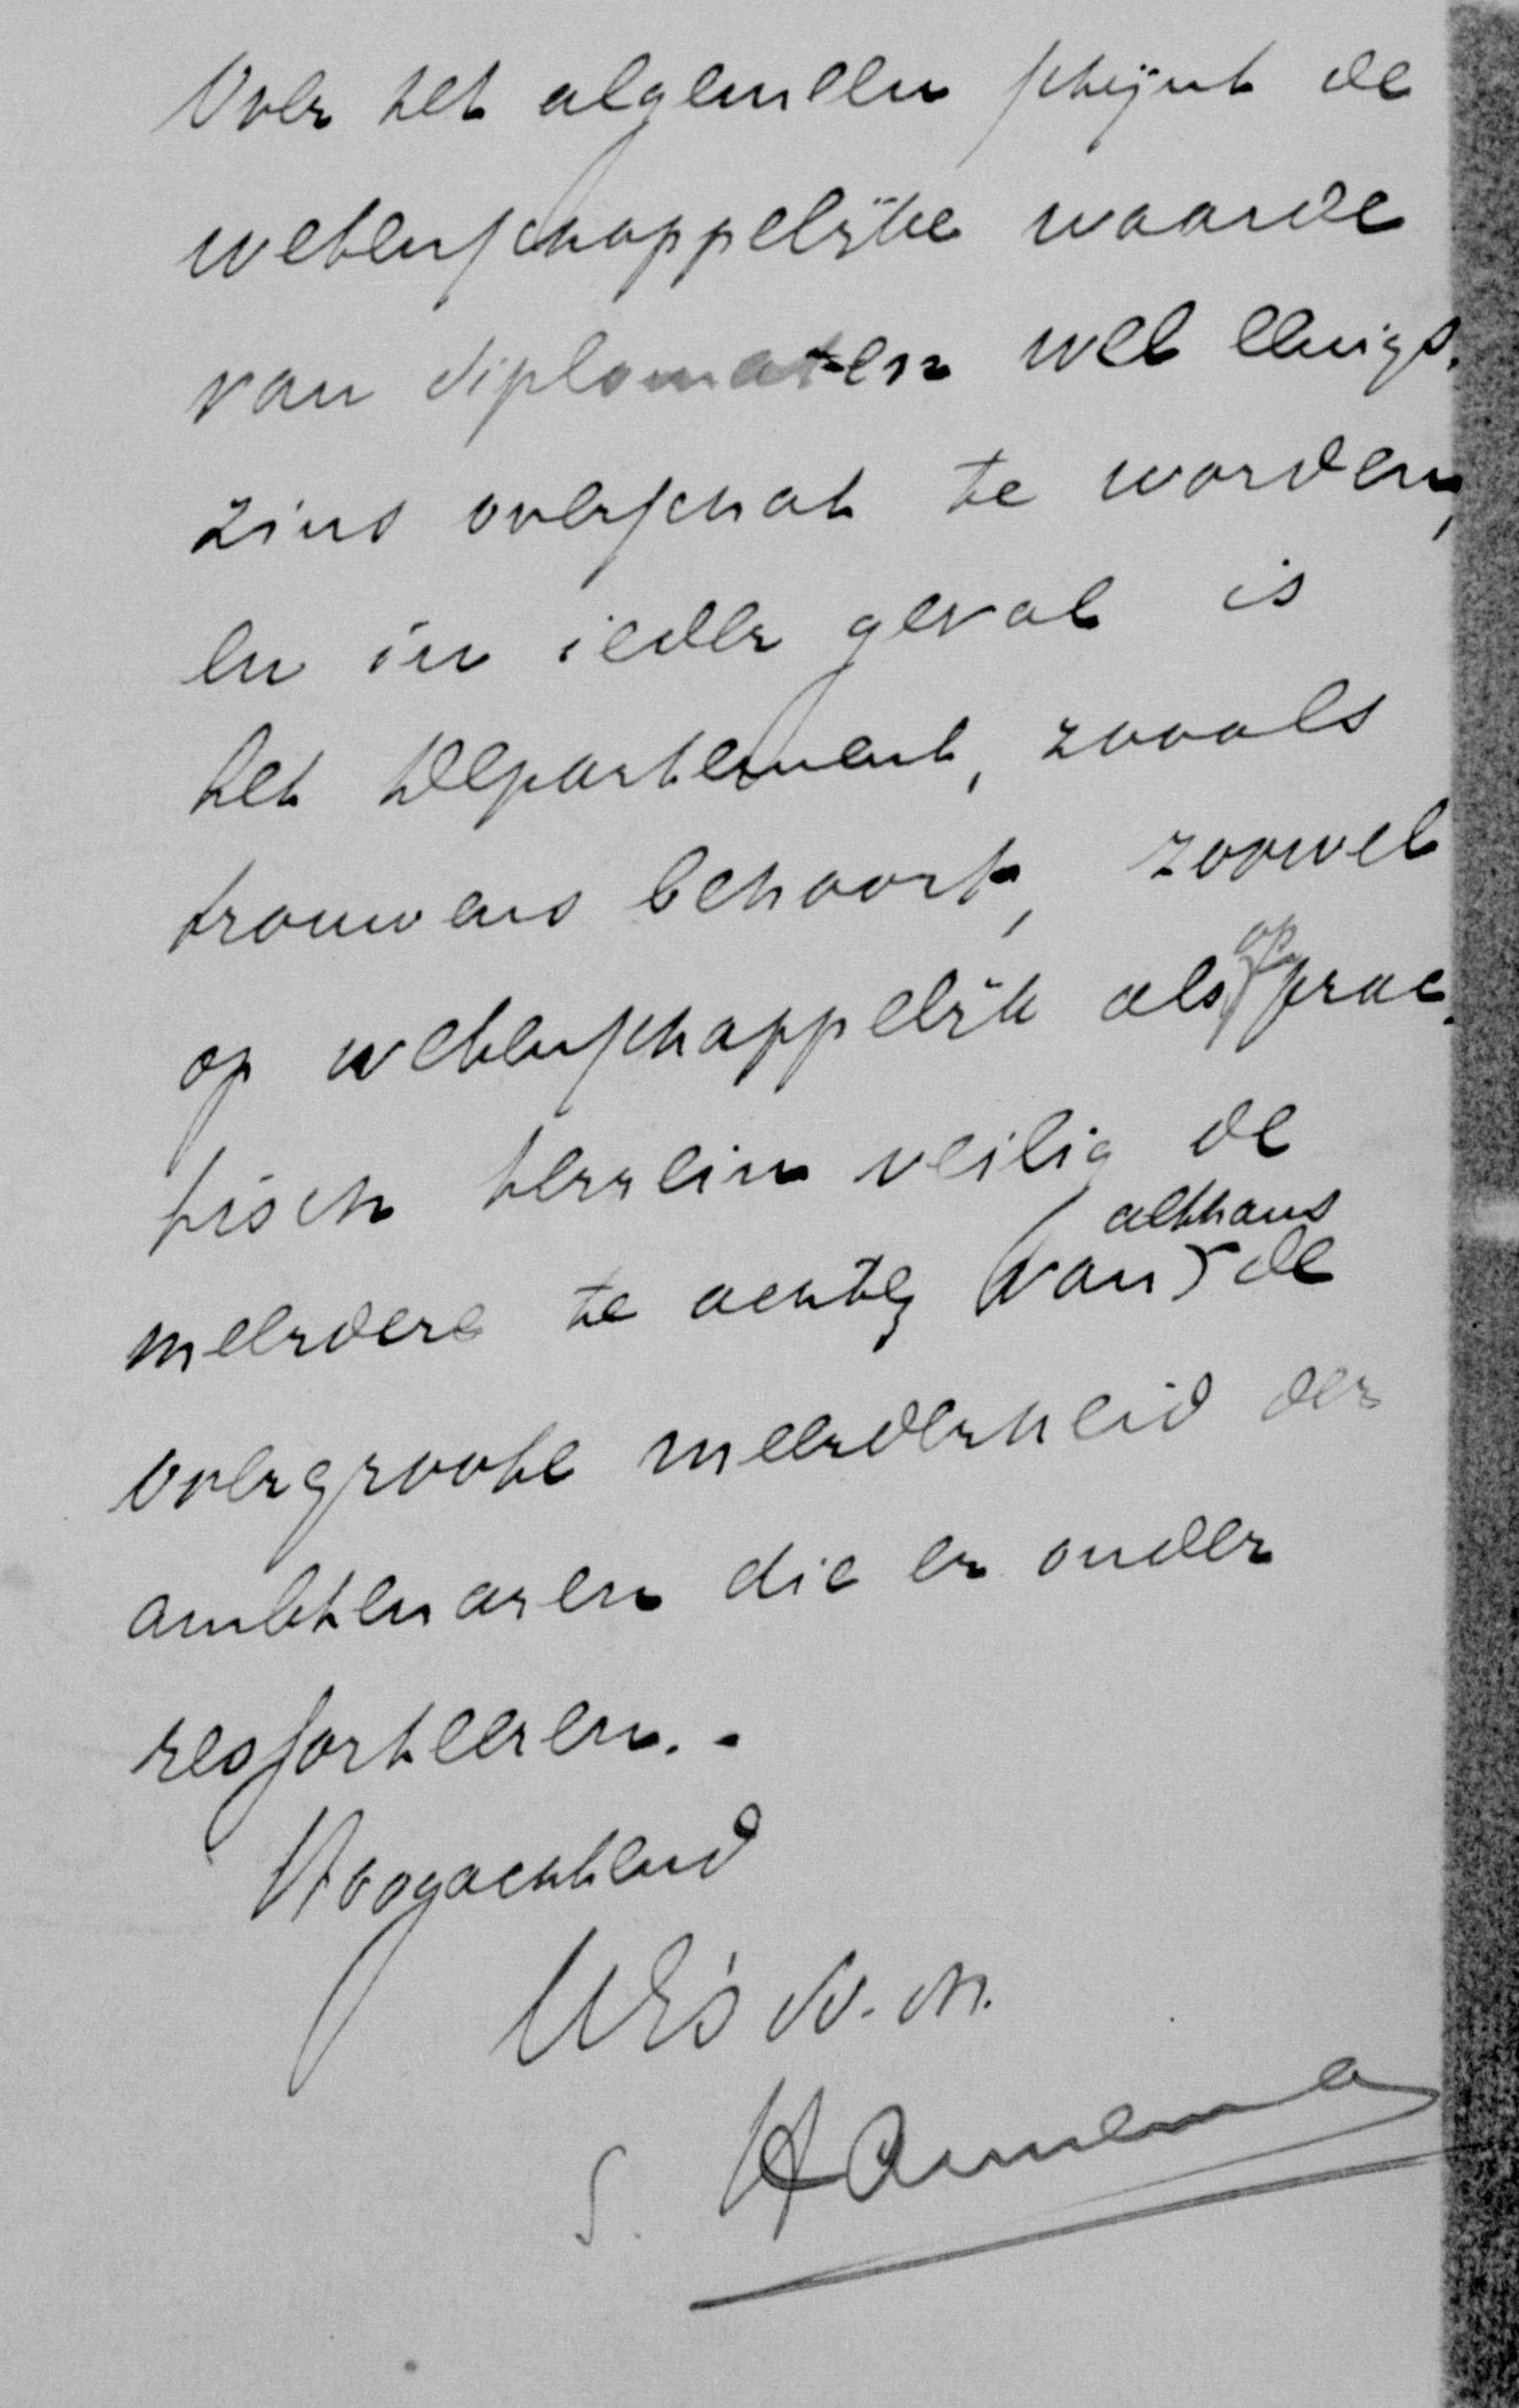 Over het algemeen schijnt de
wetenschappelijke waarde
van diplomaten wel eenigs-
zins overschat te worden,
en in ieder geval is
het Departement, zooals
trouwens behoort, zoowel
op wetenschappelijk als op prac-
tisch terrein veilig de
meerdere te achten van althans de
overgroote meerderheid der
ambtenaren die er onder
ressorteeren.-
Hoogachtend
UEs dv. dr.
S. Hannema